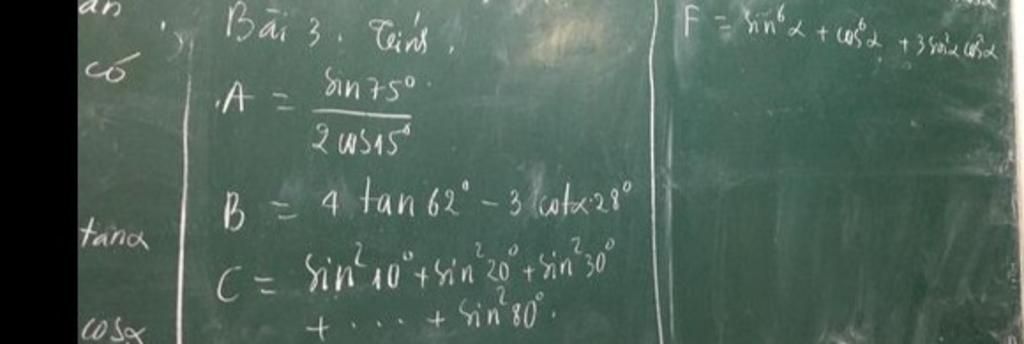 có
tanα
cosα
Bài 3. Tính.
A = sin75° / 2cos15°
B = 4 tan 62° - 3 cotα 28°
C = sin² 10° + sin² 20° + sin² 30°
+ .... + sin² 80°.
F = sin⁶α + cos⁶α + 3 sin²α cos²α